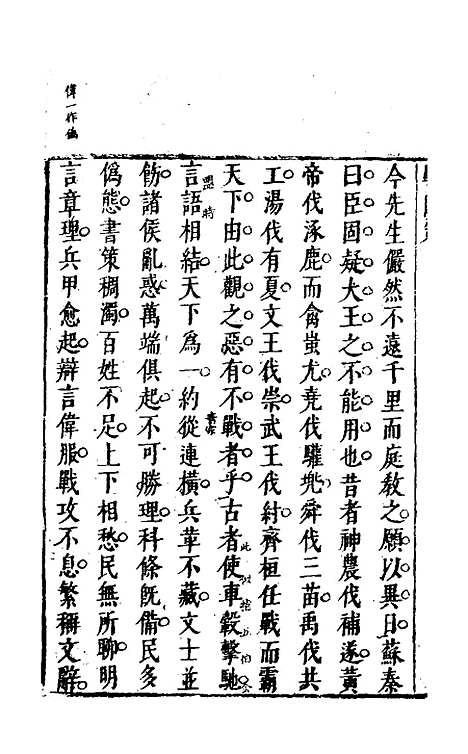 今先生儼然不遠千里而庭教之願以異日蘇秦
曰臣固疑大王之不能用也昔者神農伐補遂黃
帝伐涿鹿而禽蚩尤堯伐驩兜舜伐三苗禹伐共
工湯伐有夏文王伐崇武王伐紂齊桓任戰而霸
天下由此觀之惡有不戰者乎古者使車轂擊馳
言語相結天下爲一約從連橫兵革不藏文士並
飭諸侯亂惑萬端俱起不可勝理科條旣備民多
僞態書策稠濁百姓不足上下相愁民無所聊明
言章理兵甲愈起辯言偉服戰攻不息繁稱文辭
偉一作僞